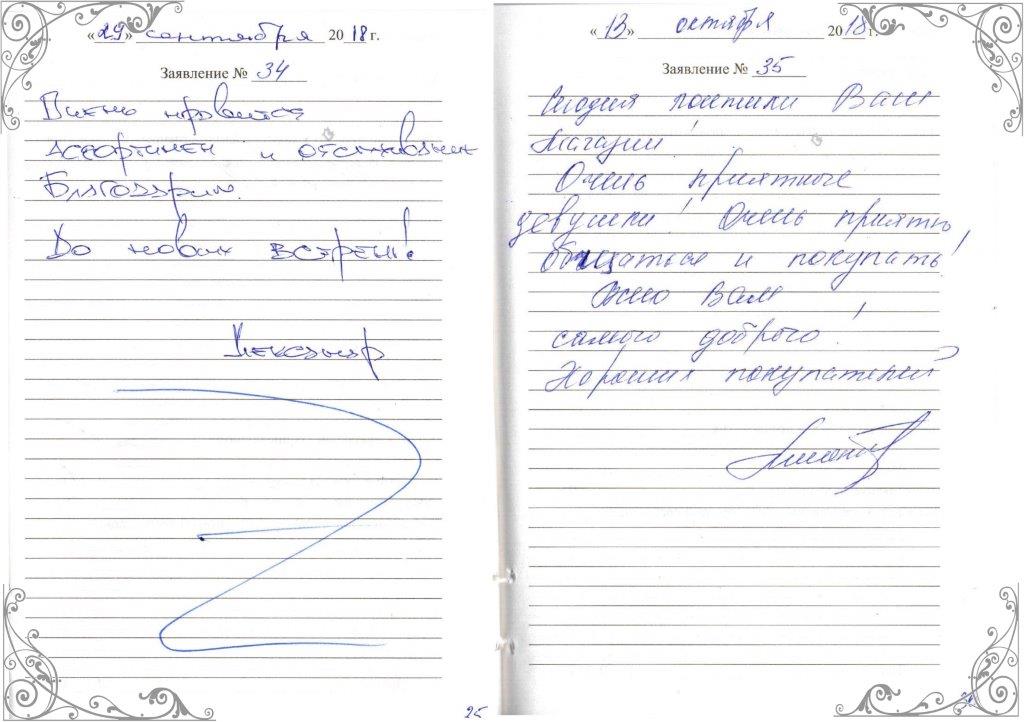 «29» сентября 2018 г.
Заявление № 34
Очень нравится
Ассортимен и
Благодарим.
До новых встреч!
Александр
25
«13» октября 2018 г.
Заявление № 35
Сегодня посетили Ваш
магазин!
Очень приятные
девушки! Очень приятно
общаться и покупать!
Вам
самого доброго!
Хороших покупателей